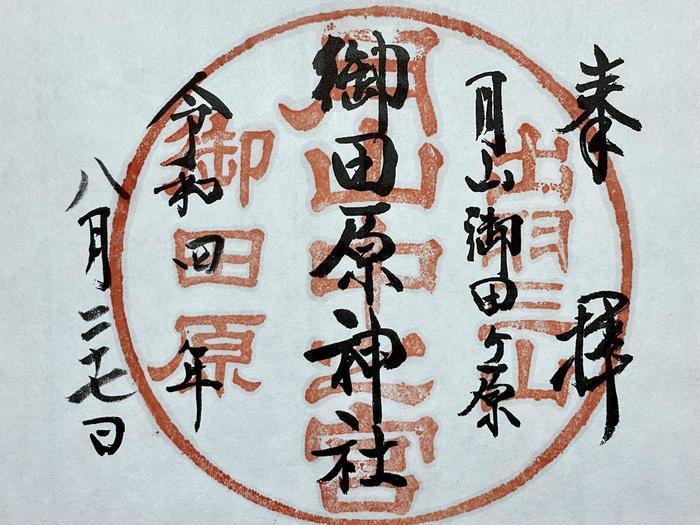 奉拝
月山御田ヶ原
御田原神社
令和四年
八月二十七日
出羽三山
月山中之宮
御田原